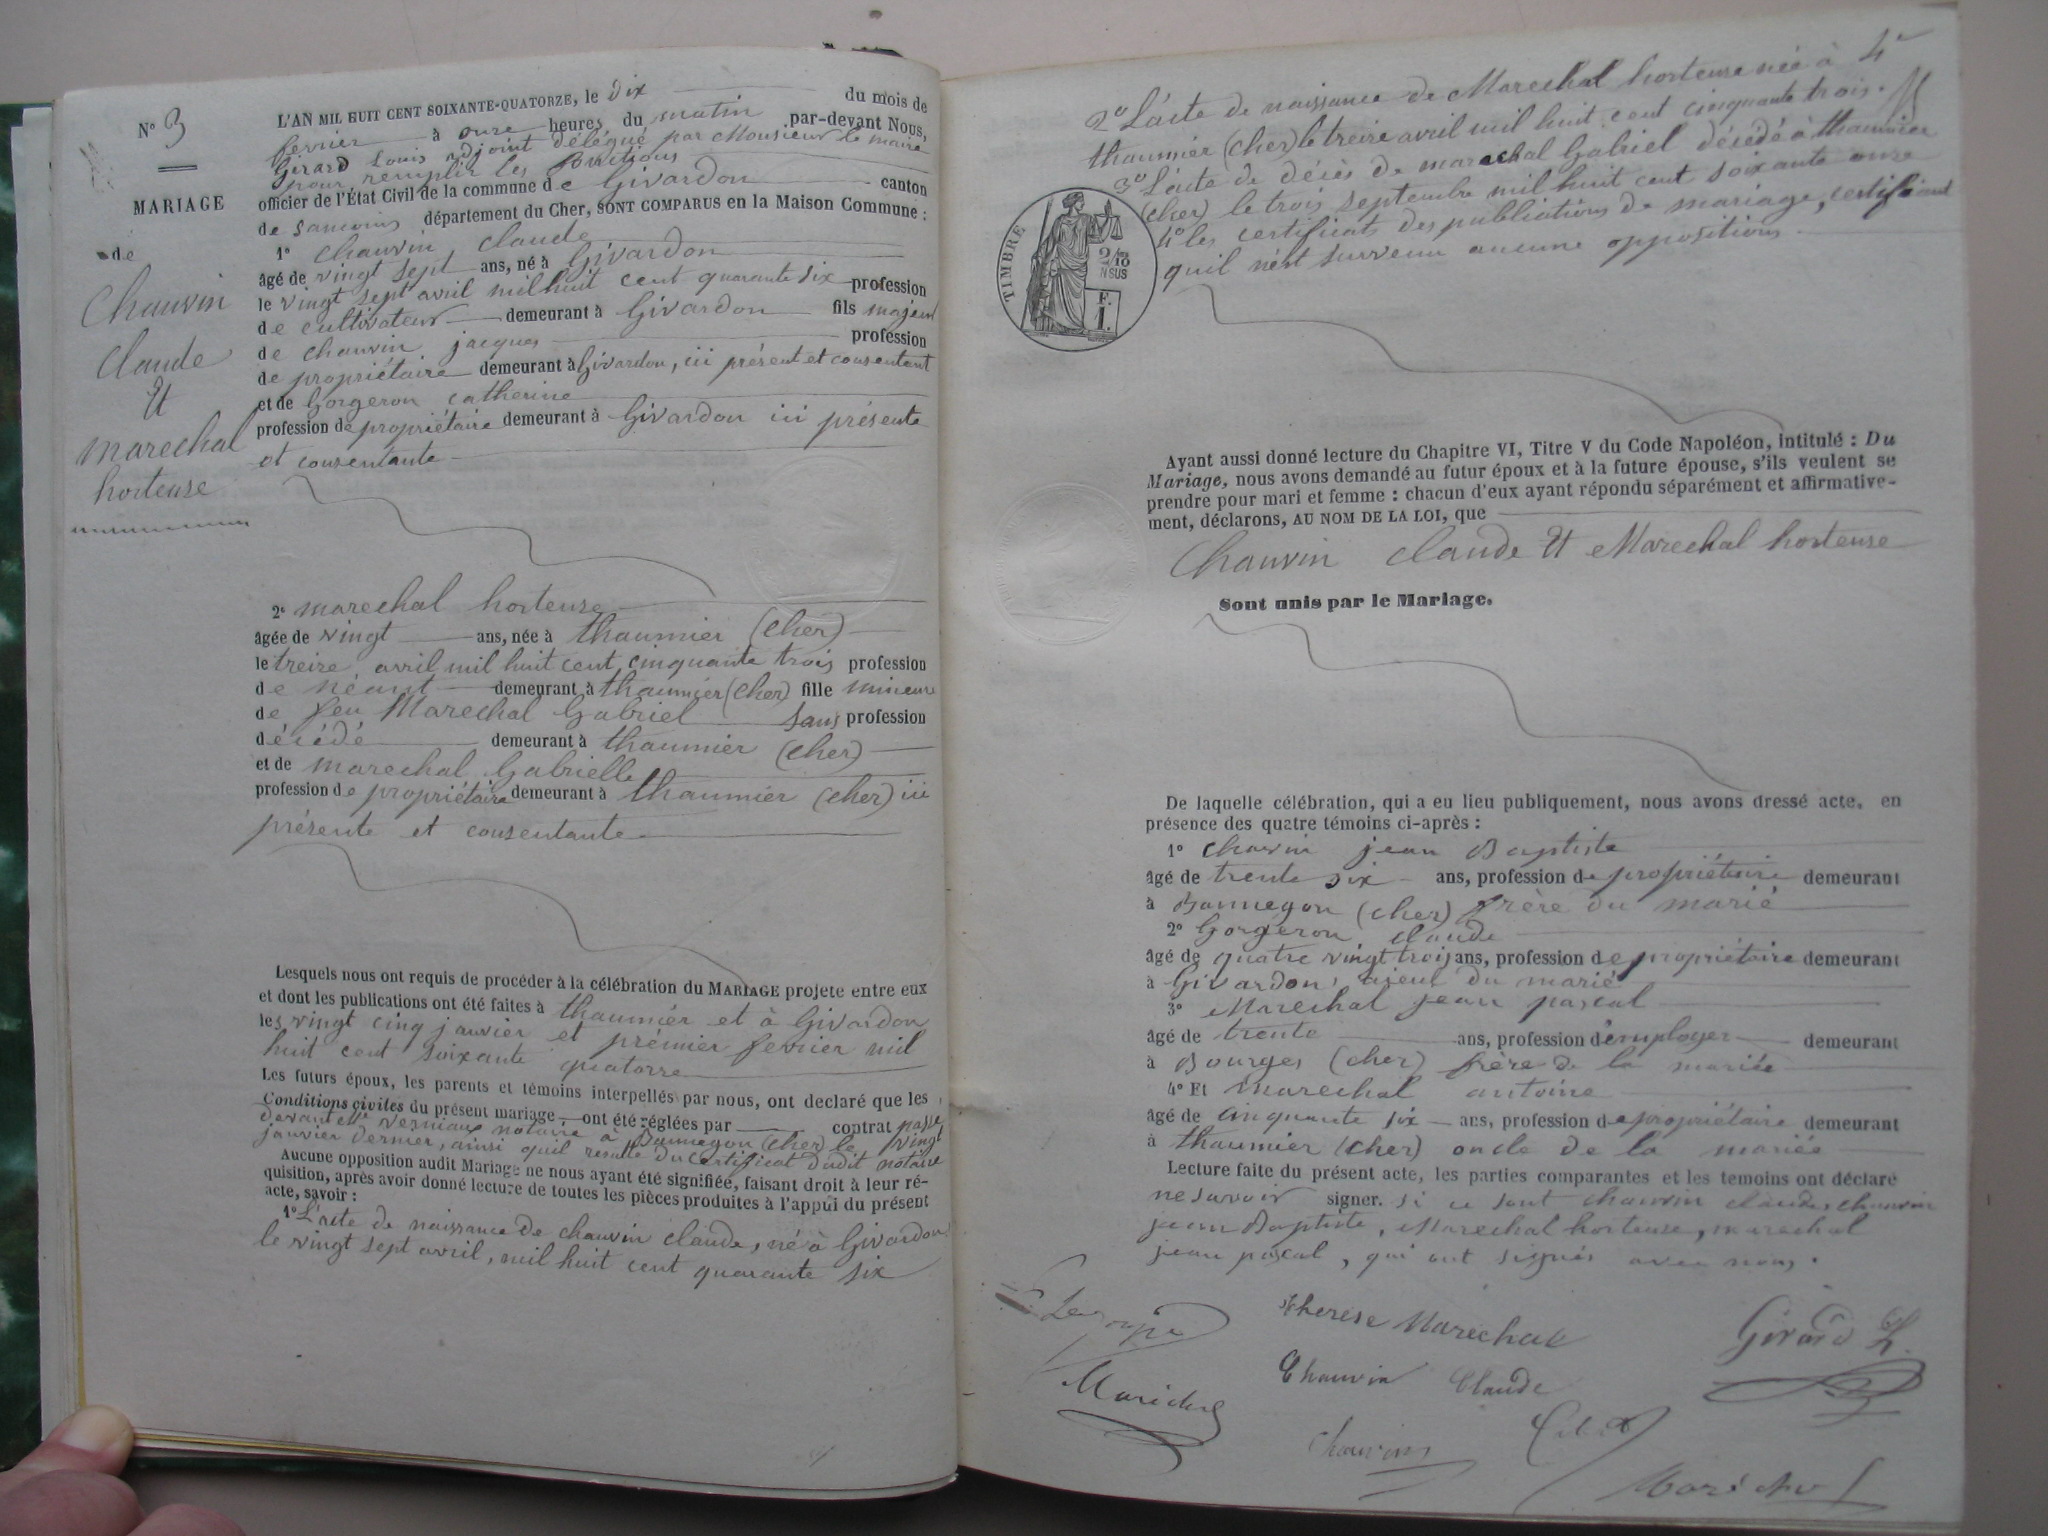 N° 3
MARIAGE
de
Chauvin
Claude
Et
marechal
hortense
L'AN MIL HUIT CENT SOIXANTE-QUATORZE, le Dix du mois de
fevrier à onze heures du matin par-devant Nous,
Girard Louis adjoint délégué par Monsieur le maire
pour remplir les fonctions
officier de l'État Civil de la commune de Givardon canton
de Sancoins département du Cher, SONT COMPARUS en la Maison Commune :
1° Chauvin Claude
âgé de vingt sept ans, né à Givardon
le vingt sept avril mil huit cent quarante six profession
de cultivateur demeurant à Givardon fils majeur
de Chauvin jacques profession
de propriétaire demeurant à Givardon, ici présent et consentant
et de Gorgeron catherine
profession de propriétaire demeurant à Givardon ici présente
et consentante
2° marechal hortense
âgée de vingt ans, née à thaumier (cher)
le treize avril mil huit cent cinquante trois profession
de néant demeurant à thaumier (cher) fille mineure
de feu Marechal Gabriel sans profession
décédé demeurant à thaumier (cher)
et de marechal Gabrielle
profession de propriétaire demeurant à thaumier (cher) ici
présente et consentante
Lesquels nous ont requis de procéder à la célébration du MARIAGE projeté entre eux
et dont les publications ont été faites à thaumiér et à Givardon
les vingt cinq janvier et prémier fevrier mil
huit cent soixante quatorze
Les futurs époux, les parents et témoins interpellés par nous, ont declaré que les
Conditions civiles du présent mariage ont été réglées par contrat passé
devant verniaux notaire à Bannegon (cher) le vingt
janvier dernier, ainsi qu'il resulte du certificat dudit notaire
Aucune opposition audit Mariage ne nous ayant été signifiée, faisant droit à leur ré-
quisition, après avoir donné lecture de toutes les pièces produites à l'appui du présent
acte, savoir :
1° L'acte de naissance de chauvin claude, né à Givardon
le vingt sept avril, mil huit cent quarante six
4
2° L'acte de naissance de Marechal hortense née à
thaumier (cher) le treize avril mil huit cent cinquante trois.
3° L'acte de décès de marechal Gabriel décédé à thaumier
(cher) le trois septembre mil huit cent soixante onze
4° les certificats des publications de mariage, certifiant
quil n'est survenu aucune oppositions
TIMBRE
2/10
EN SUS
F.
1.
Ayant aussi donné lecture du Chapitre VI, Titre V du Code Napoléon, intitulé : Du
Mariage, nous avons demandé au futur époux et à la future épouse, s'ils veulent se
prendre pour mari et femme : chacun d'eux ayant répondu séparément et affirmative-
ment, déclarons, AU NOM DE LA LOI, que
Chauvin claude Et Marechal hortense
Sont unis par le Mariage.
De laquelle célébration, qui a eu lieu publiquement, nous avons dressé acte, en
présence des quatre témoins ci-après :
1° Chauvin jean Baptiste
âgé de trente six ans, profession de propriétaire demeurant
à Bannegon (cher) frère du marié
2° Gorgeron claude
âgé de quatre vingt trois ans, profession de propriétaire demeurant
à Givardon, aieul du marié
3° Marechal jean pascal
âgé de trente ans, profession d'employer demeurant
à Bourges (cher) frère de la mariée
4° Et marechal antoine
âgé de cinquante six ans, profession de propriétaire demeurant
à thaumier (cher) oncle de la mariée
Lecture faite du présent acte, les parties comparantes et les temoins ont déclaré
ne savoir signer. si ce sont chauvin claude, chauvin
jean Baptiste, Marechal hortense, marechal
jean pascal, qui ont signés avec nous.
therese Marechal
Girard L.
Chauvin Claude
Marechal
Chauvin
Marechal